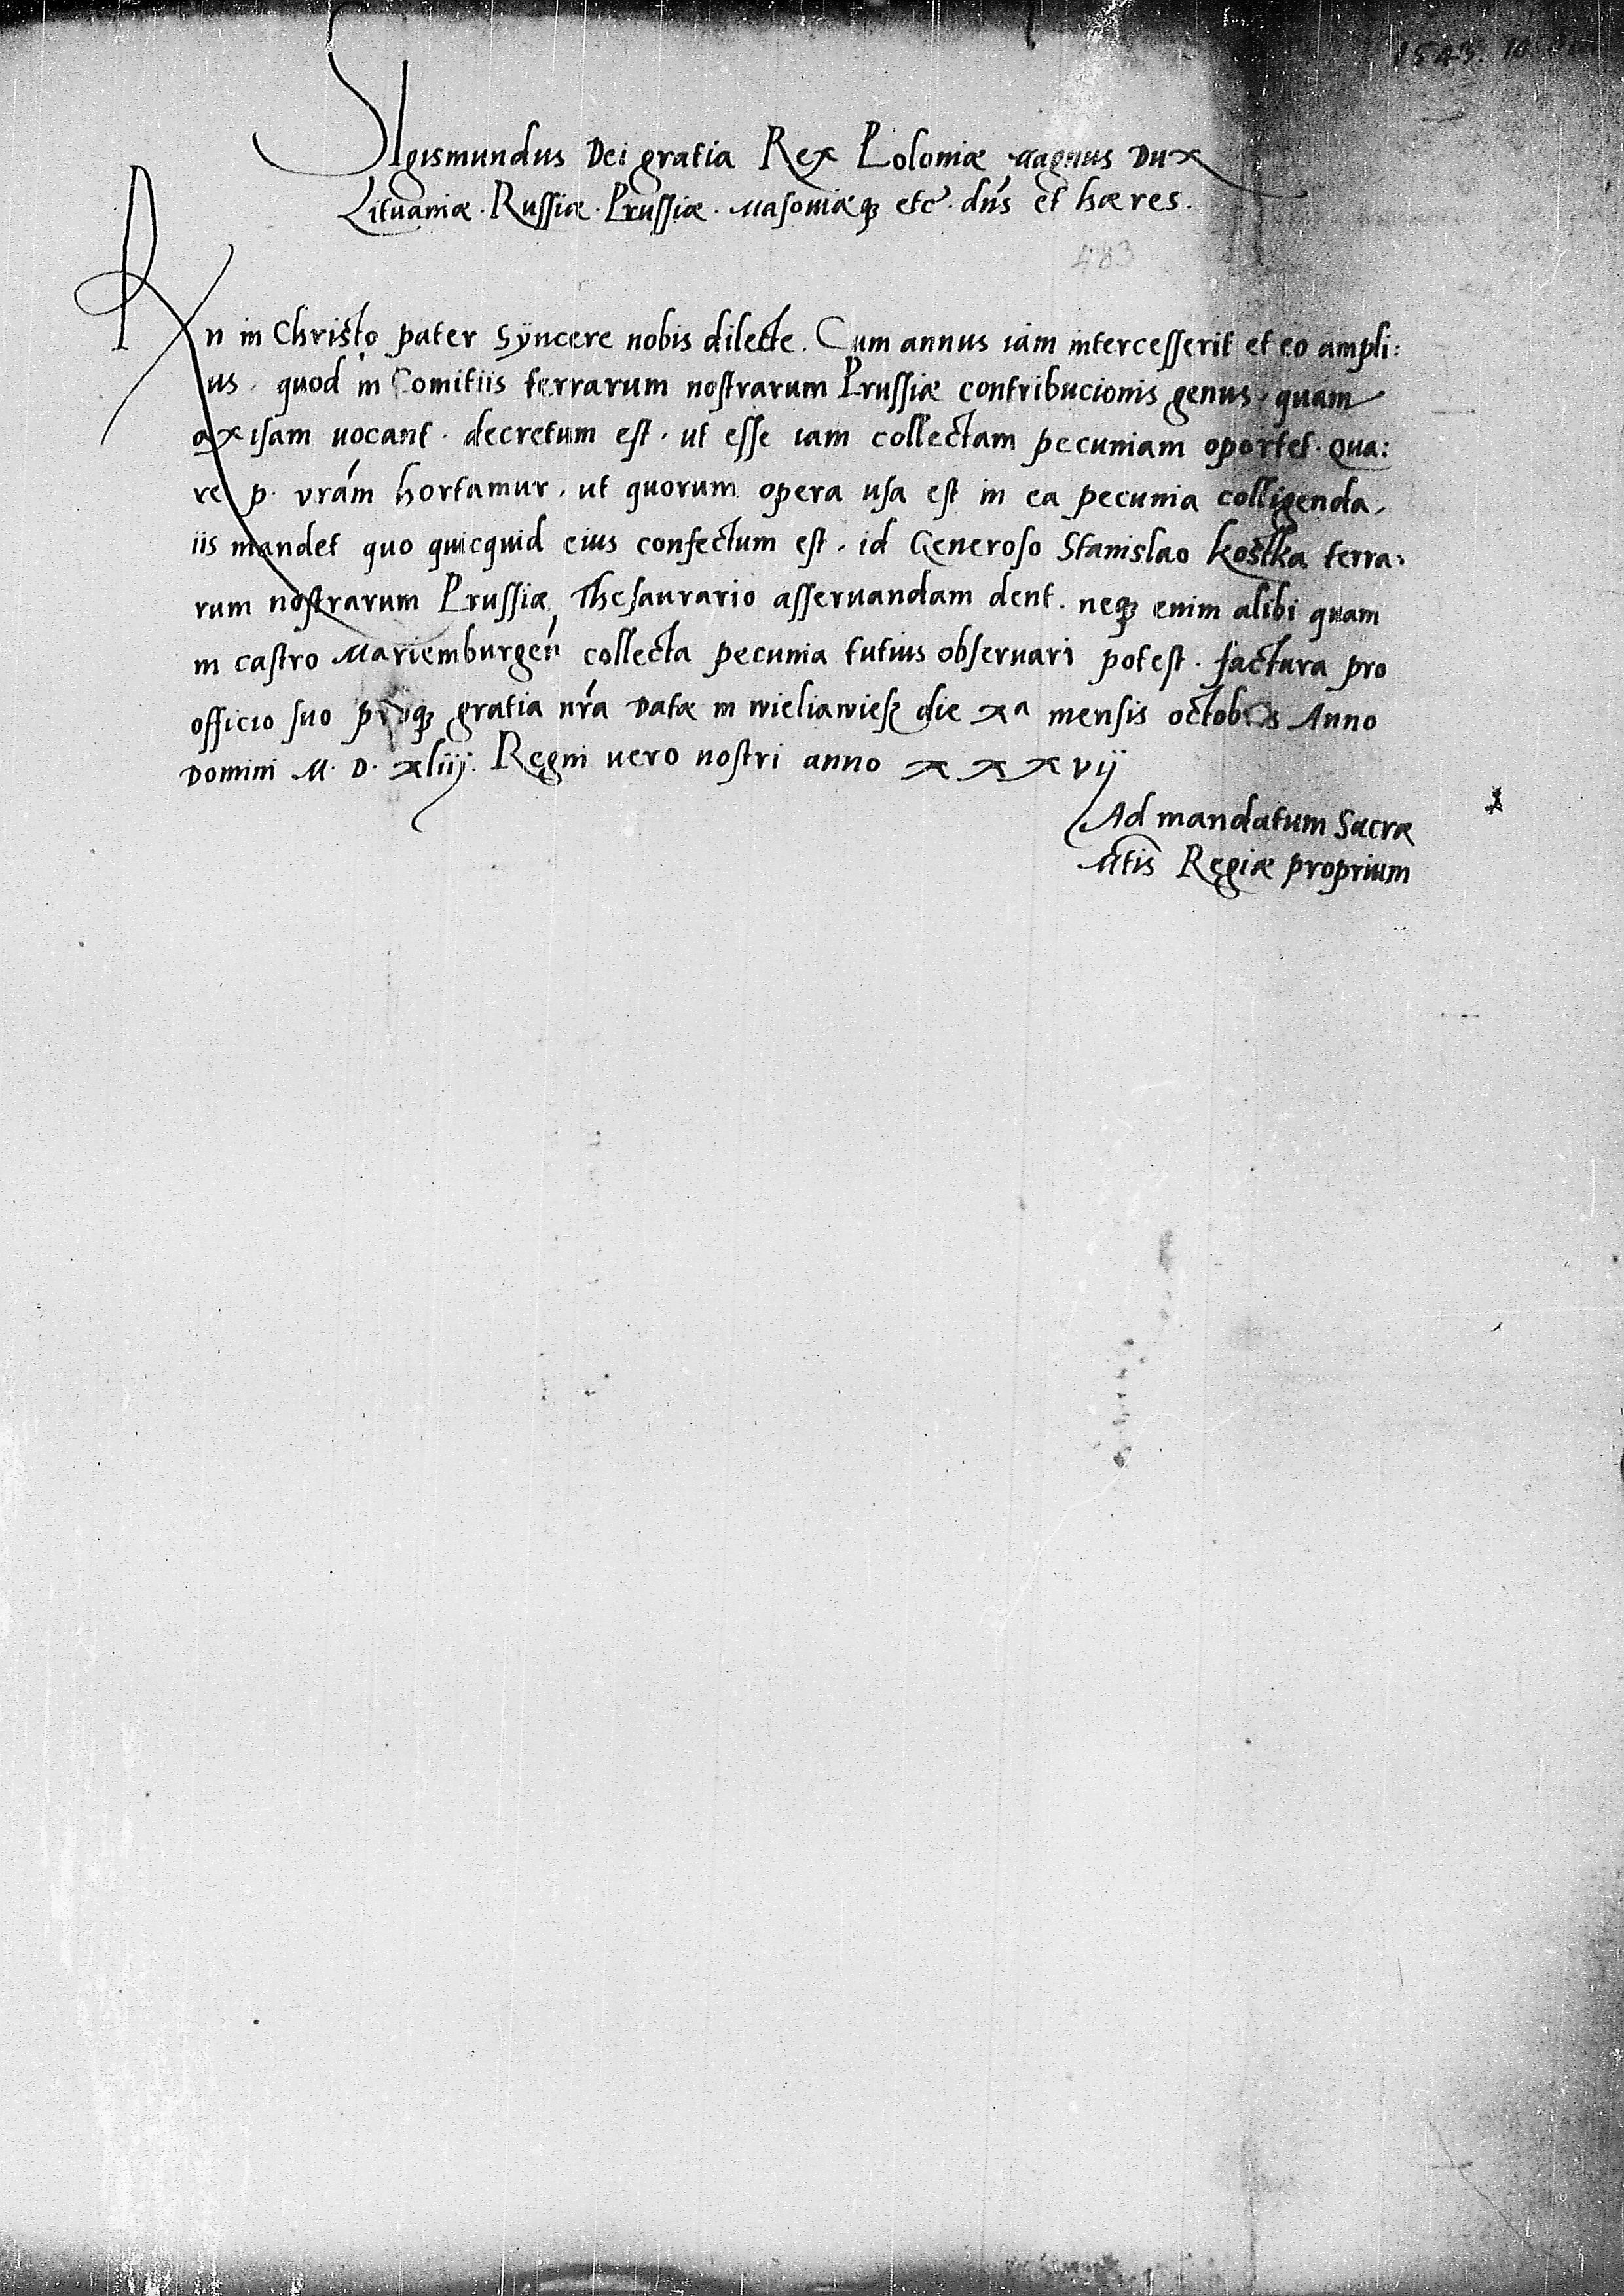 1543. 10
Sigismundus Dei gratia Rex Poloniæ Magnus Dux
Lituaniæ. Russiæ. Prussiæ. Masoviæq3 etc. dn̄s et hæres.
483
Rn in Christo pater Syncere nobis dilecte. Cum annus iam intercesserit et eo ampli:
us. quod in Comitiis terrarum nostrarum Prussiæ contribucionis genus, quam
axisam uocant. decretum est. ut esse iam collectam pecuniam oportet. Qua:
re p. vrām hortamur. ut quorum opera usa est in ea pecunia colligenda,
iis mandet quo quicquid eius confectum est. id Generoso Stanislao Kostka terra:
rum nostrarum Prussiæ Thesaurario asseruandam dent. neq3 enim alibi quam
in castro Mariemburgen̄ collecta pecunia tutius obseruari potest. factura pro
officio suo proq3 gratia nrā Datæ in wieliawiesz die xa mensis octobris Anno
Domini M. D. xliij. Regni vero nostri anno xxxvij
Ad mandatum Sacræ
Mtis Regiæ proprium